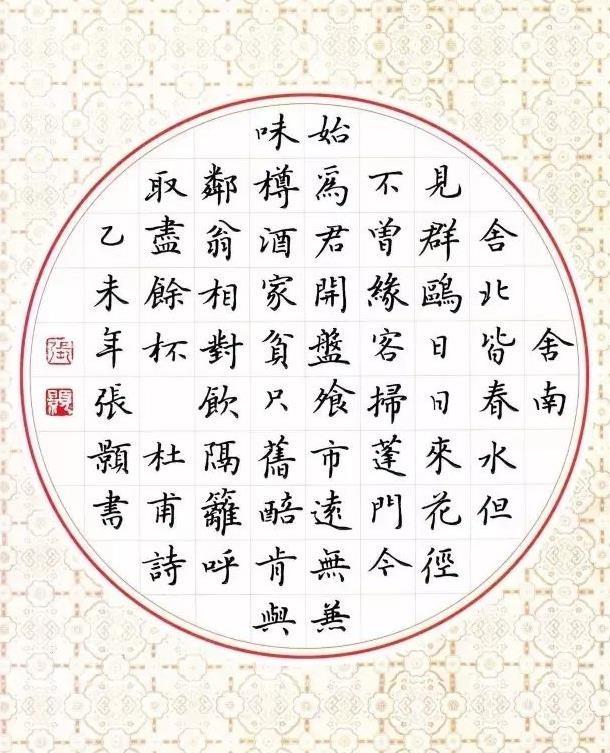 舍南
舍北皆春水但
見群鷗日日來花徑
不曾緣客掃蓬門今
始爲君開盤飧市遠無兼
味樽酒家貧只舊醅肯與
鄰翁相對飲隔籬呼
取盡餘杯 杜甫詩
乙未年張顥書